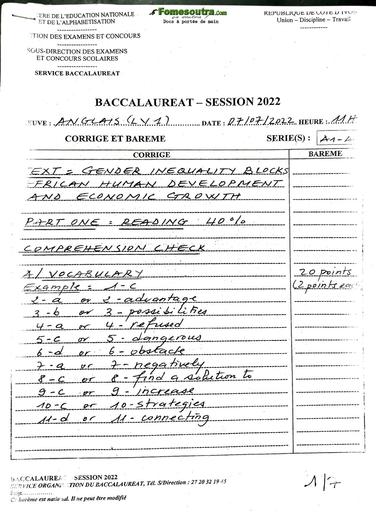 ERE DE L'EDUCATION NATIONALE
ET DE L'ALPHABETISATION
Fomesoutra.com
Docs à portée de main
REPUBLIQUE DE COTE D'IVOI
Union – Discipline – Travail
TION DES EXAMENS ET CONCOURS
SOUS-DIRECTION DES EXAMENS
ET CONCOURS SCOLAIRES
SERVICE BACCALAUREAT
BACCALAUREAT – SESSION 2022
EUVE : ANGLAIS (LV1) DATE : 07/07/2022 HEURE : 11H
CORRIGE ET BAREME SERIE(S) : A1-
CORRIGE BAREME
EXT = GENDER INEQUALITY BLOCKS
FRICAN HUMAN DEVELOPMENT
AND ECONOMIC GROWTH
PART ONE = READING : 40%
COMPREHENSION CHECK
A/ VOCABULARY 20 points
Example = 1-C (2 points
2-a or 2-advantage
3-b or 3-possibilities
4-a or 4-refused
5-c or 5-dangerous
6-d or 6-obstacle
7-a or 7-negatively
8-c or 8-find a solution to
9-c or 9-increase
10-c or 10-strategies
11-d or 11-connecting
BACCALAUREAT SESSION 2022
SERVICE ORGAN TION DU BACCALAUREAT, Tél. S/Direction : 27 20 32 19 45
barème est national. Il ne peut être modifié
1/7